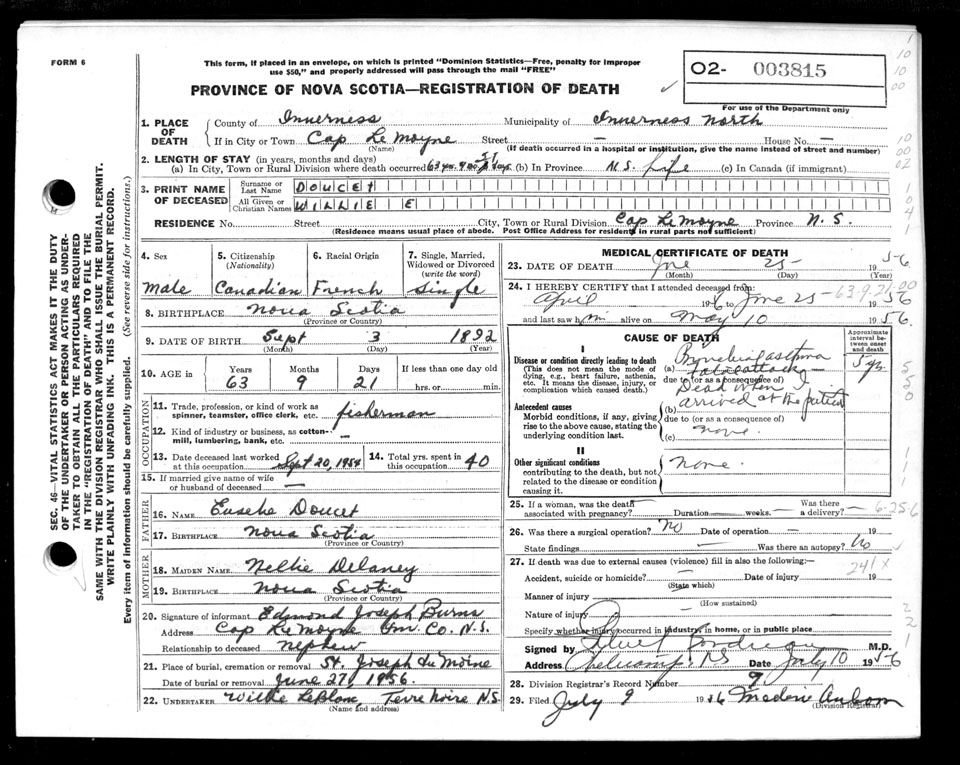 FORM 6
This form, if placed in an envelope, on which is printed "Dominion Statistics—Free, penalty for improper
use $50," and properly addressed will pass through the mail "FREE"
PROVINCE OF NOVA SCOTIA—REGISTRATION OF DEATH
O2- 003815
For use of the Department only
SEC. 46—VITAL STATISTICS ACT MAKES IT THE DUTY
OF THE UNDERTAKER OR PERSON ACTING AS UNDER-
TAKER TO OBTAIN ALL THE PARTICULARS REQUIRED
IN THE "REGISTRATION OF DEATH" AND TO FILE THE
SAME WITH THE DIVISION REGISTRAR WHO SHALL ISSUE THE BURIAL PERMIT.
WRITE PLAINLY WITH UNFADING INK. THIS IS A PERMANENT RECORD.
Every item of information should be carefully supplied. (See reverse side for instructions.)
1. PLACE OF DEATH
County of Inverness Municipality of Inverness North
If in City or Town Cap Le Moyne Street — House No. —
(Name) (If death occurred in a hospital or institution, give the name instead of street and number)
2. LENGTH OF STAY (in years, months and days)
(a) In City, Town or Rural Division where death occurred 63 yrs. 9 mo. 21 days (b) In Province N.S. Life (c) In Canada (if immigrant)
3. PRINT NAME OF DECEASED
Surname or Last Name DOUCET
All Given or Christian Names WILLIE E
RESIDENCE No. Street City, Town or Rural Division Cap Le Moyne Province N.S.
(Residence means usual place of abode. Post Office Address for residents in rural parts not sufficient)
4. Sex
Male
5. Citizenship (Nationality)
Canadian
6. Racial Origin
French
7. Single, Married, Widowed or Divorced (write the word)
Single
8. BIRTHPLACE Nova Scotia
(Province or Country)
9. DATE OF BIRTH Sept 3 1892
(Month) (Day) (Year)
10. AGE IN
Years Months Days If less than one day
63 9 21 hrs. or min.
OCCUPATION
11. Trade, profession, or kind of work as
spinner, teamster, office clerk, etc. fisherman
12. Kind of industry or business, as cotton-
mill, lumbering, bank, etc. —
13. Date deceased last worked
at this occupation Sept 20, 1954
14. Total yrs. spent in
this occupation 40
15. If married give name of wife
or husband of deceased —
FATHER
16. NAME Eusebe Doucet
17. BIRTHPLACE Nova Scotia
(Province or Country)
MOTHER
18. MAIDEN NAME Nellie Delaney
19. BIRTHPLACE Nova Scotia
(Province or Country)
20. Signature of informant Edmond Joseph Burns
Address Cap Le Moyne Inv. Co. N.S.
Relationship to deceased nephew
21. Place of burial, cremation or removal St. Joseph du Moine
Date of burial or removal June 27, 1956.
22. UNDERTAKER Willie LeBlanc, Terre Noire N.S.
(Name and address)
MEDICAL CERTIFICATE OF DEATH
23. DATE OF DEATH June 25 1956
(Month) (Day) (Year)
24. I HEREBY CERTIFY that I attended deceased from:
63-9-21-00
April 1956 to June 25 - 1956
and last saw him alive on May 10 1956.
CAUSE OF DEATH
Approximate interval between onset and death
I
Disease or condition directly leading to death
(This does not mean the mode of
dying, e.g., heart failure, asthenia,
etc. It means the disease, injury, or
complication which caused death.)
(a) Bronchial asthma
fatal attack
5 yrs.
due to (or as a consequence of)
Dead when I
arrived at the patient
Antecedent causes
Morbid conditions, if any, giving
rise to the above cause, stating the
underlying condition last.
(b)
due to (or as a consequence of)
(c) none.
II
Other significant conditions
contributing to the death, but not
related to the disease or condition
causing it.
none.
25. If a woman, was the death
associated with pregnancy? — Duration — weeks. Was there a delivery? —
6-25-6
26. Was there a surgical operation? No Date of operation — 19
State findings — Was there an autopsy? No
27. If death was due to external causes (violence) fill in also the following:—
241X
Accident, suicide or homicide? — Date of injury 19
(State which)
Manner of injury
(How sustained)
Nature of injury
Specify whether injury occurred in industry, in home, or in public place
Signed by M.D.
Address Cheticamp, NS Date July 10 1956
28. Division Registrar's Record Number 9
29. Filed July 9 1956
(Division Registrar)